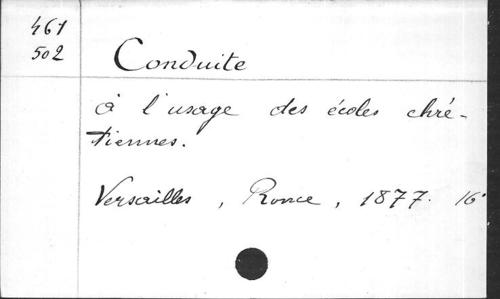 461
502
Conduite
à l'usage des écoles chré-
tiennes.
Versailles, Ronce, 1877. 16°